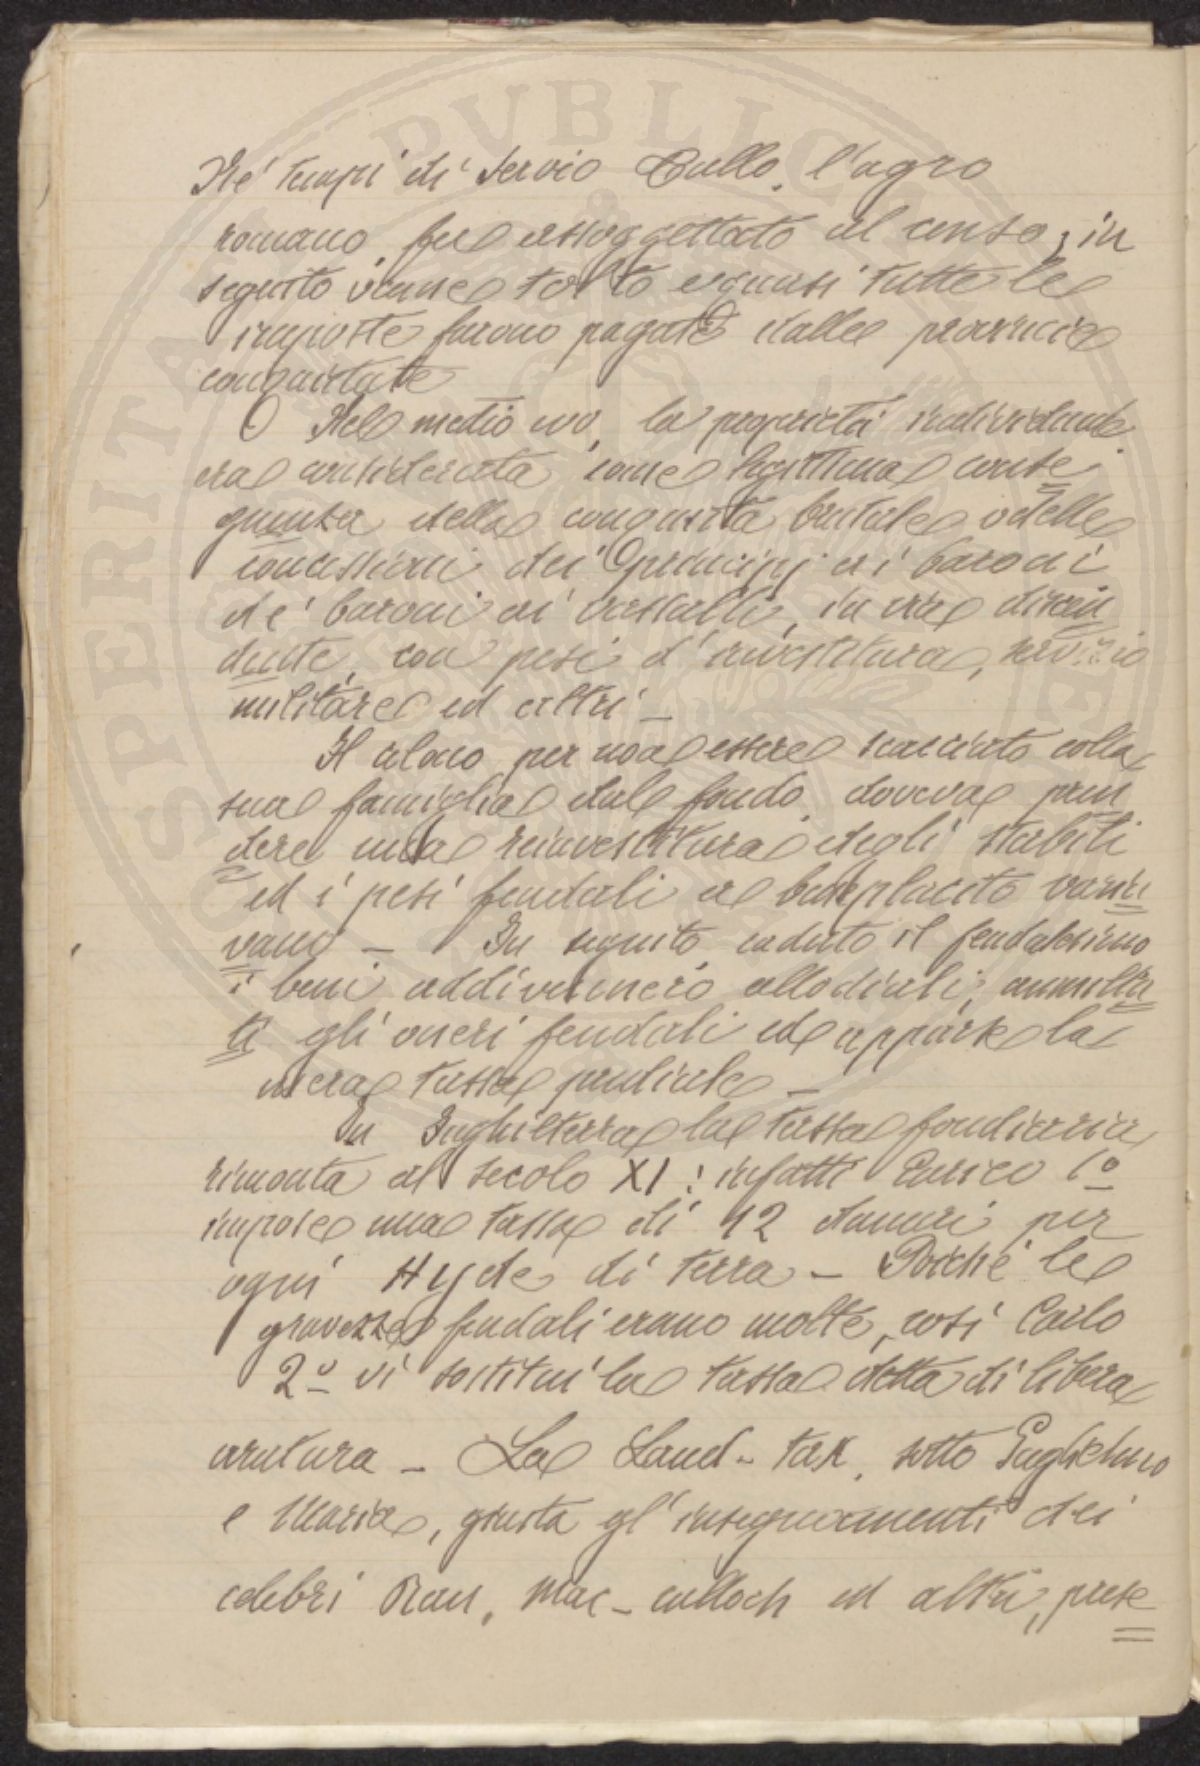 Ne' tempi di Servio Tullo, l'agro
romano, fu assoggettato al censo, in
seguito venne tolto e quasi tutte le
imposte furono pagate dalle provincie
conquistate
Nel medio evo, la proprietà individuale
era considerata come legittima conse
guenza della conquista brutale o delle
concessioni dei principj ai baroni
de' baroni ai vassalli, in via discen
dente, con pesi d'investitura, servizio
militare ed altri –
Il colono per non essere scacciato colla
sua famiglia dal fondo, doveva pren
dere una reinvestitura degli stabili
ed i pesi feudali a beneplacito varia
vano – In seguito, caduto il feudalesimo
i beni addivennero allodiali, annulla
ti gli oneri feudali ed apparse la
mera tassa prediale –
In Inghilterra la tassa fondiaria
rimonta al secolo XI: infatti Enrico 1º
impose una tassa di 12 danari per
ogni Hyde di terra – Poichè le
gravezze feudali erano molte, così Carlo
2º vi sostituì la tassa detta di libera
aratura – La Land-tax, sotto Guglielmo
e Maria, giusta gl'insegnamenti dei
celebri Rau, Mac-culloch ed altri, prese
SPERITAS PUBLICA